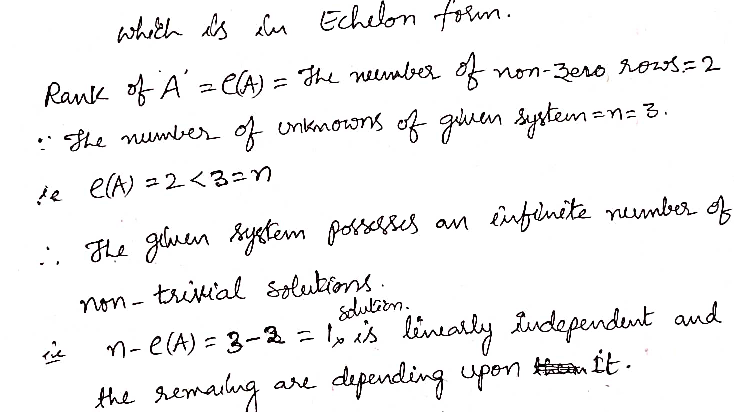 which is in Echelon form.
Rank of 'A' = ρ(A) = The number of non-zero rows = 2
∵ The number of unknowns of given system = n = 3.
ie ρ(A) = 2 < 3 = n
∴ The given system possesses an infinite number of
non-trivial solutions.
ie n - ρ(A) = 3 - 2 = 1, solution. is linearly independent and
the remailng are depending upon it.